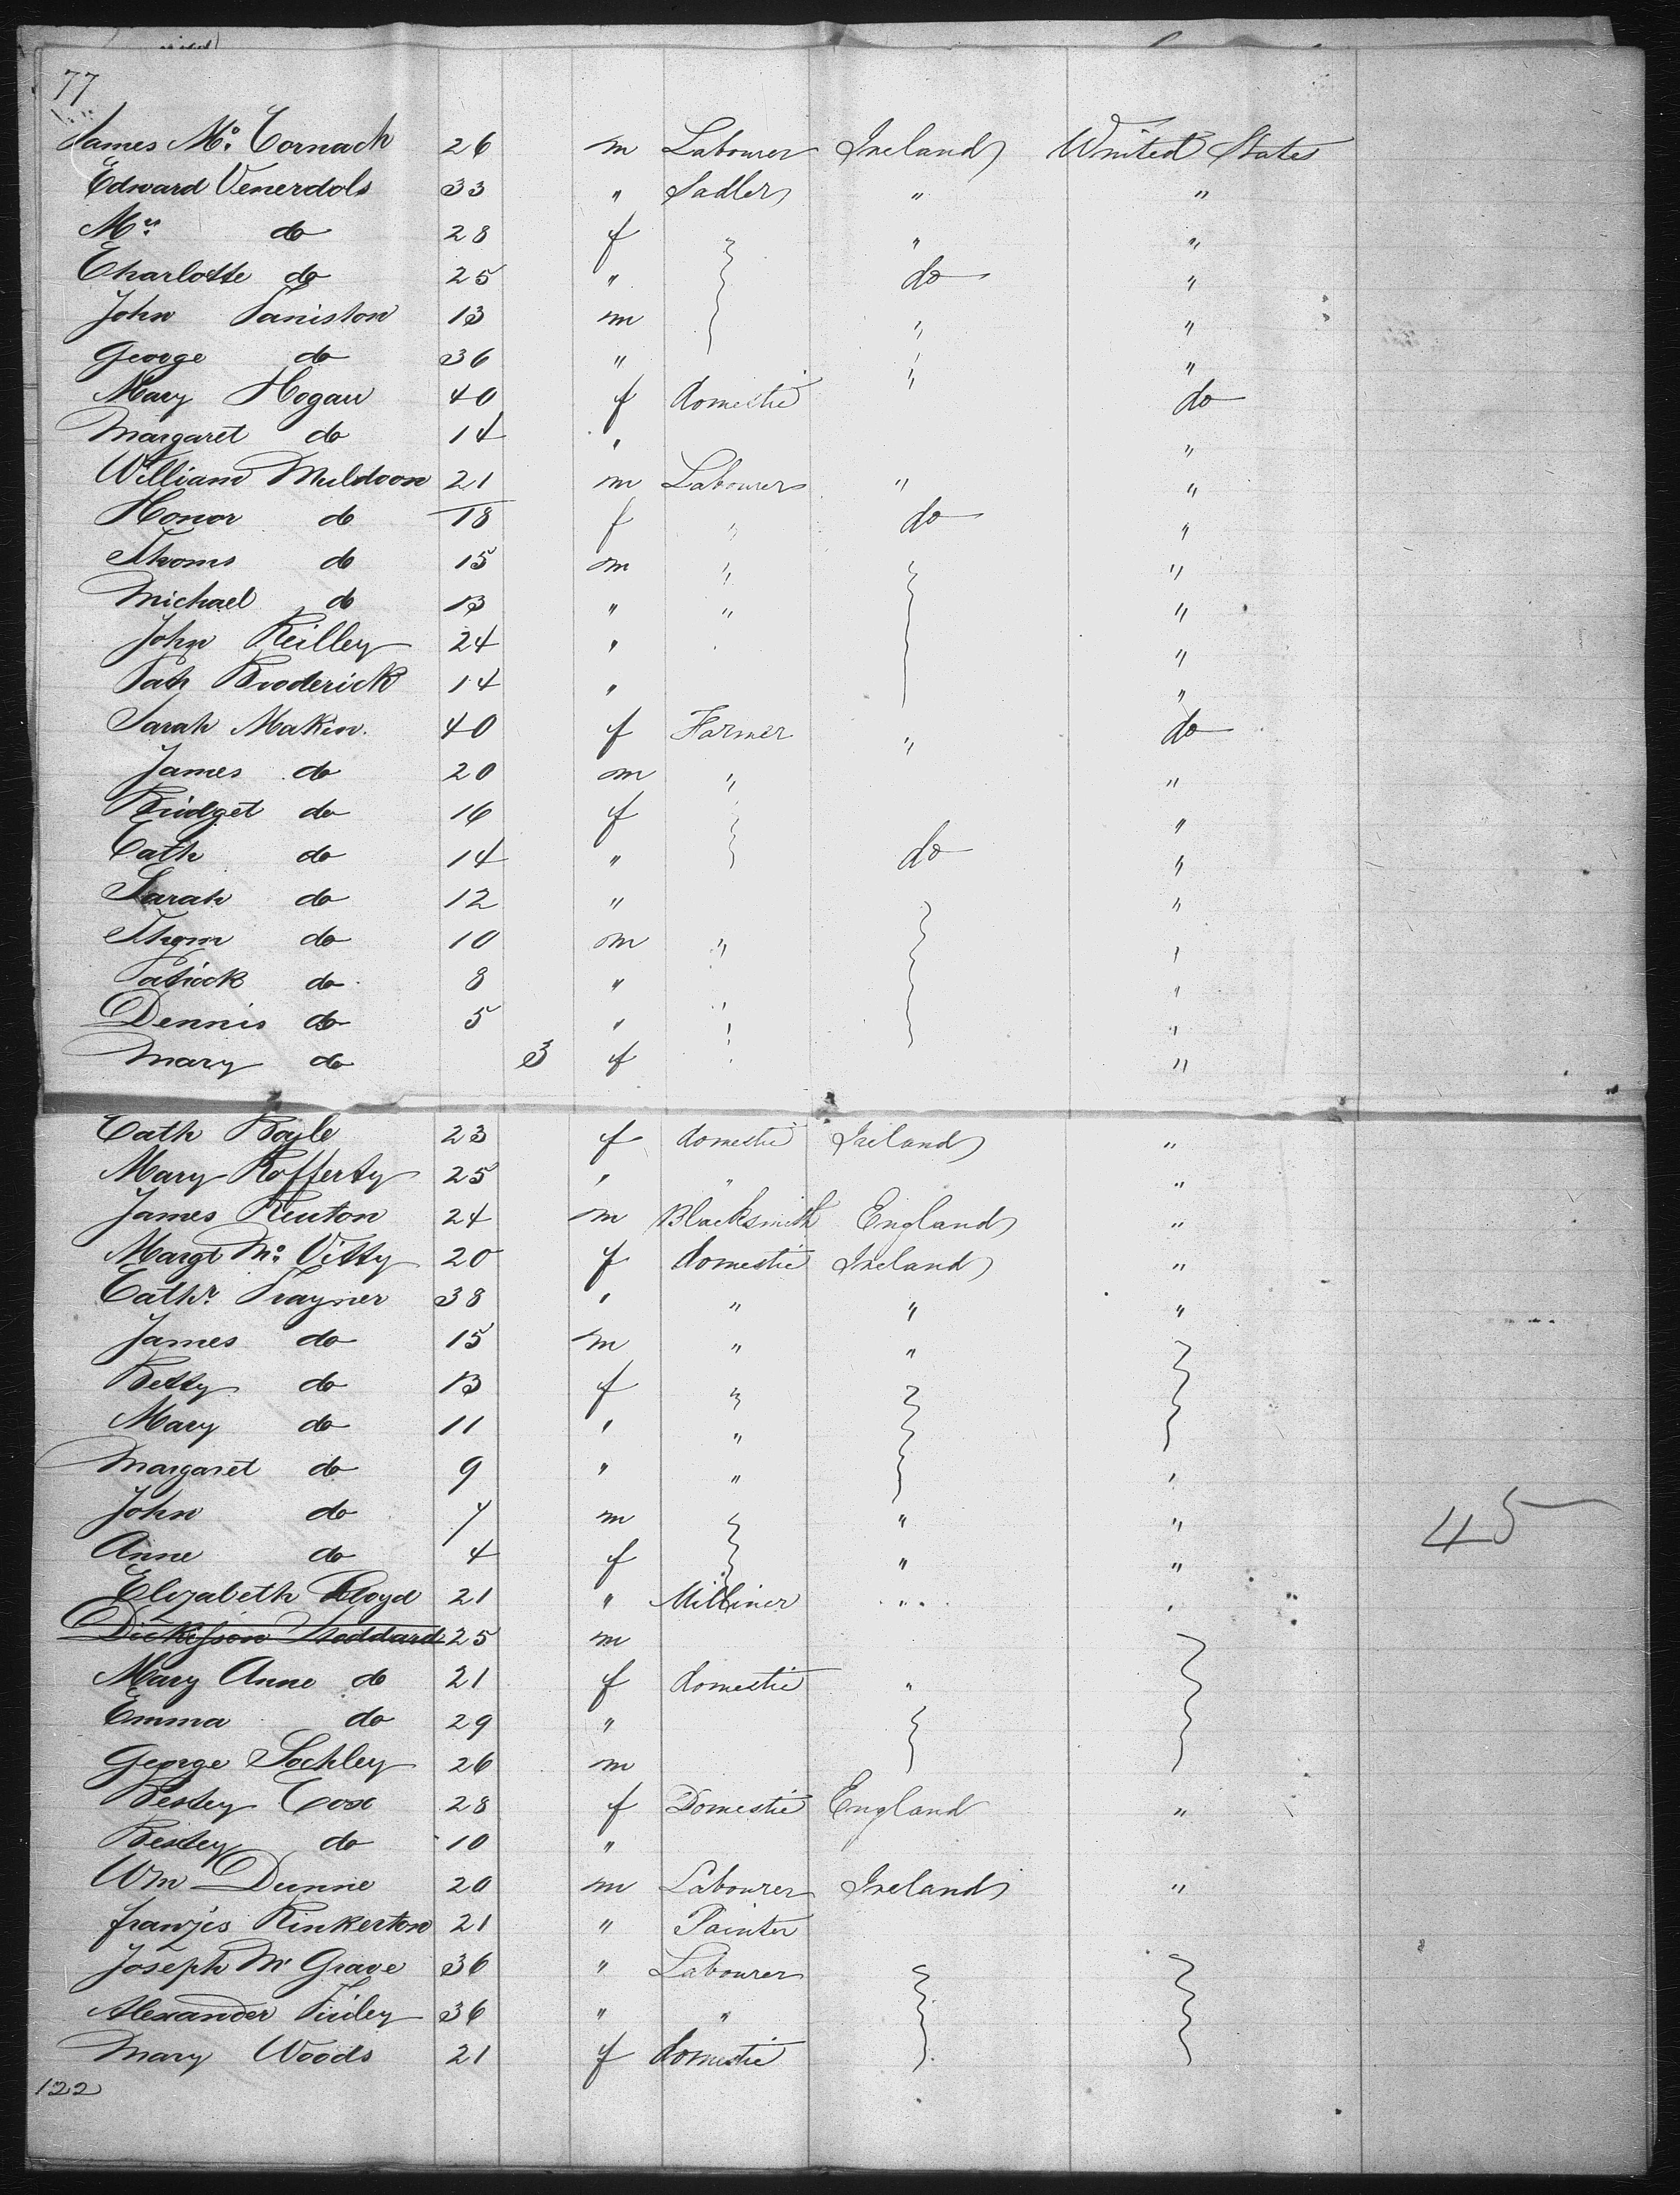 77
James Mc. Cornack 26 m Labourer Ireland United States
Edward Venerdols 33 " Sadler " "
Mrs. do 28 f " "
Charlotte do 25 " do "
John Faniston 13 m " "
George do 36 " " "
Mary Hogan 40 f domestic " do
Margaret do 14 " "
William Muldoon 21 m Labourers " "
Honor do 18 f " do "
Thoms do 15 m " "
Michael do 13 " " "
John Reilley 24 " "
Path Broderick 14 " "
Sarah Makin. 40 f Farmer " do
James do 20 m " "
Bridget do 16 f "
Cath do 14 " do "
Sarah do 12 " "
Thom do 10 m " "
Patrick do 8 " " "
Dennis do 5 " " "
Mary do 3 f "
Cath Boyle 23 f domestic Ireland "
Mary Rofferty 25 " " "
James Renton 24 m Blacksmith England "
Margt Mc. Vitty 20 f domestic Ireland "
Cathr. Traynier 38 " " " "
James do 15 m " "
Betty do 13 f "
Mary do 11 " "
Margaret do 9 " " "
John do 7 m " "
Anne do 4 f " "
45
Elizabeth Lloyd 21 " Milliner " "
Dickisson Stoddard 25 m
Mary Anne do 21 f domestic "
Emma do 29 "
George Sochley 26 m
Bestey Cox 28 f Domestic England "
Bestey do 10 "
Wm Dunne 20 m Labourer Ireland "
franzis Pinkerton 21 " Painter
Joseph Mc Grave 36 " Labourer
Alexander Finley 36 " "
Mary Woods 21 f domestic
122